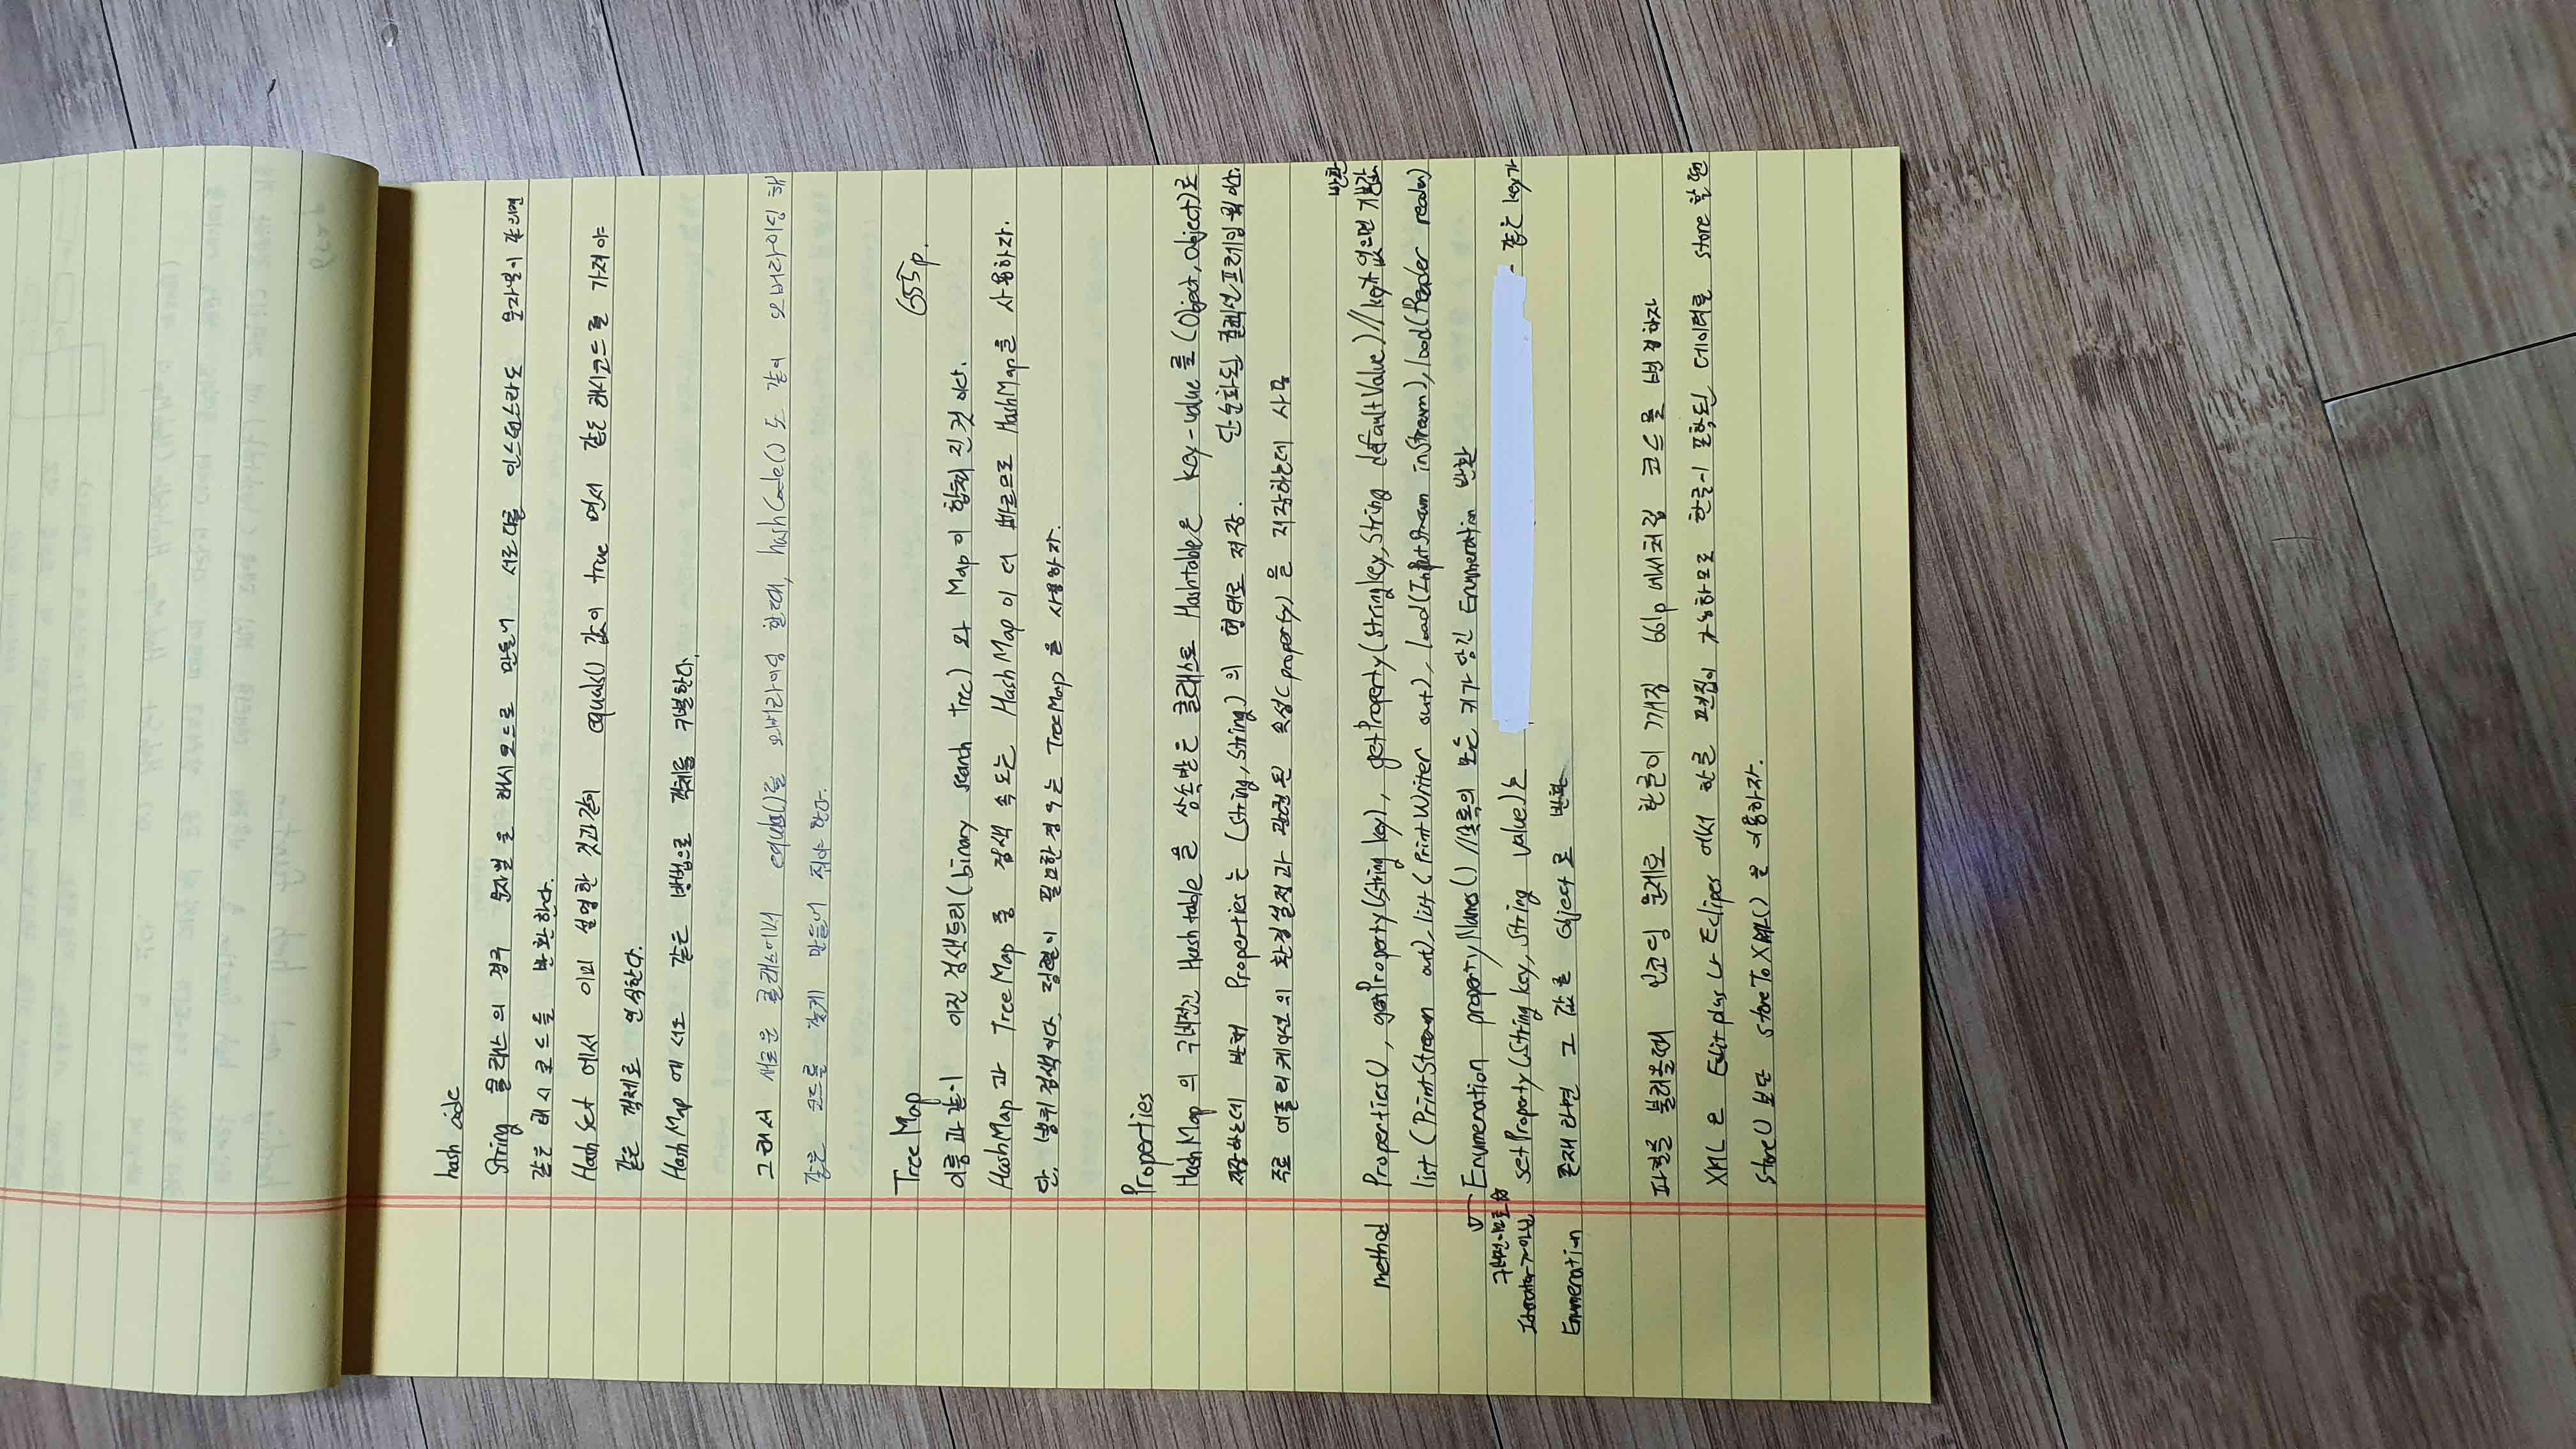 hash code
String 클래스의 경우 문자열을 해시코드로 만들어 서로다를 인스턴스라도 문자열이 같으면
같은 해시코드를 반환한다.
Hash Set 에서 이미 설명한 것과같이 equals() 값이 true 면서 같은 해시코드를 가져야
같은 객체로 인식한다.
Hash Map 에서도 같은 방법으로 객체를 구별한다.
그래서 새로운 클래스에서 equals()를 오버라이딩 할때, hashCode()도 같이 오버라이딩 해
같은 코드를 갖게 만들어 줘야 한다.
Tree Map 655p.
이름과 같이 이진 검색트리(binary search tree) 와 Map이 합쳐진 것이다.
HashMap과 TreeMap 중 검색 속도는 HashMap이 더 빠르므로 HashMap을 사용하자.
단, 범위검색이다, 정렬이 필요한경우는 TreeMap을 사용하자.
Properties
HashMap의 구버전인 Hashtable을 상속받은 클래스로 Hashtable은 key-value를 (Object, Object)로
저장하는데 반해 Properties는 (String, String)의 형태로 저장. 단순화된 컬렉션프레임웍이다.
주로 어플리케이션의 환경설정과 관련된 속성(property)을 저장하는데 사용
반환
method Properties(), getProperty(String key), getProperty(String key, String defaultValue) // key가 없으면 기본값
list (PrintStream out), list (PrintWriter out), load(InputStream inStream), load(Reader reader)
Enumeration propertyNames() //목록의 모든 키가 담긴 Enumeration 반환
구버전이므로
Iterator가아닌 setProperty(String key, String value)는 - 같은 key가
Enumeration 존재 라면 그 값을 Object로 반환
파일을 불러올때 인코딩 문제로 한글이 깨짐 661p에서처럼 코드를 변경하자
XML은 Editplus나 Eclipes에서 한글 편집이 가능하므로 한글이 포함된 데이터를 store 할땐
store()보단 storeToXML()을 이용하자.